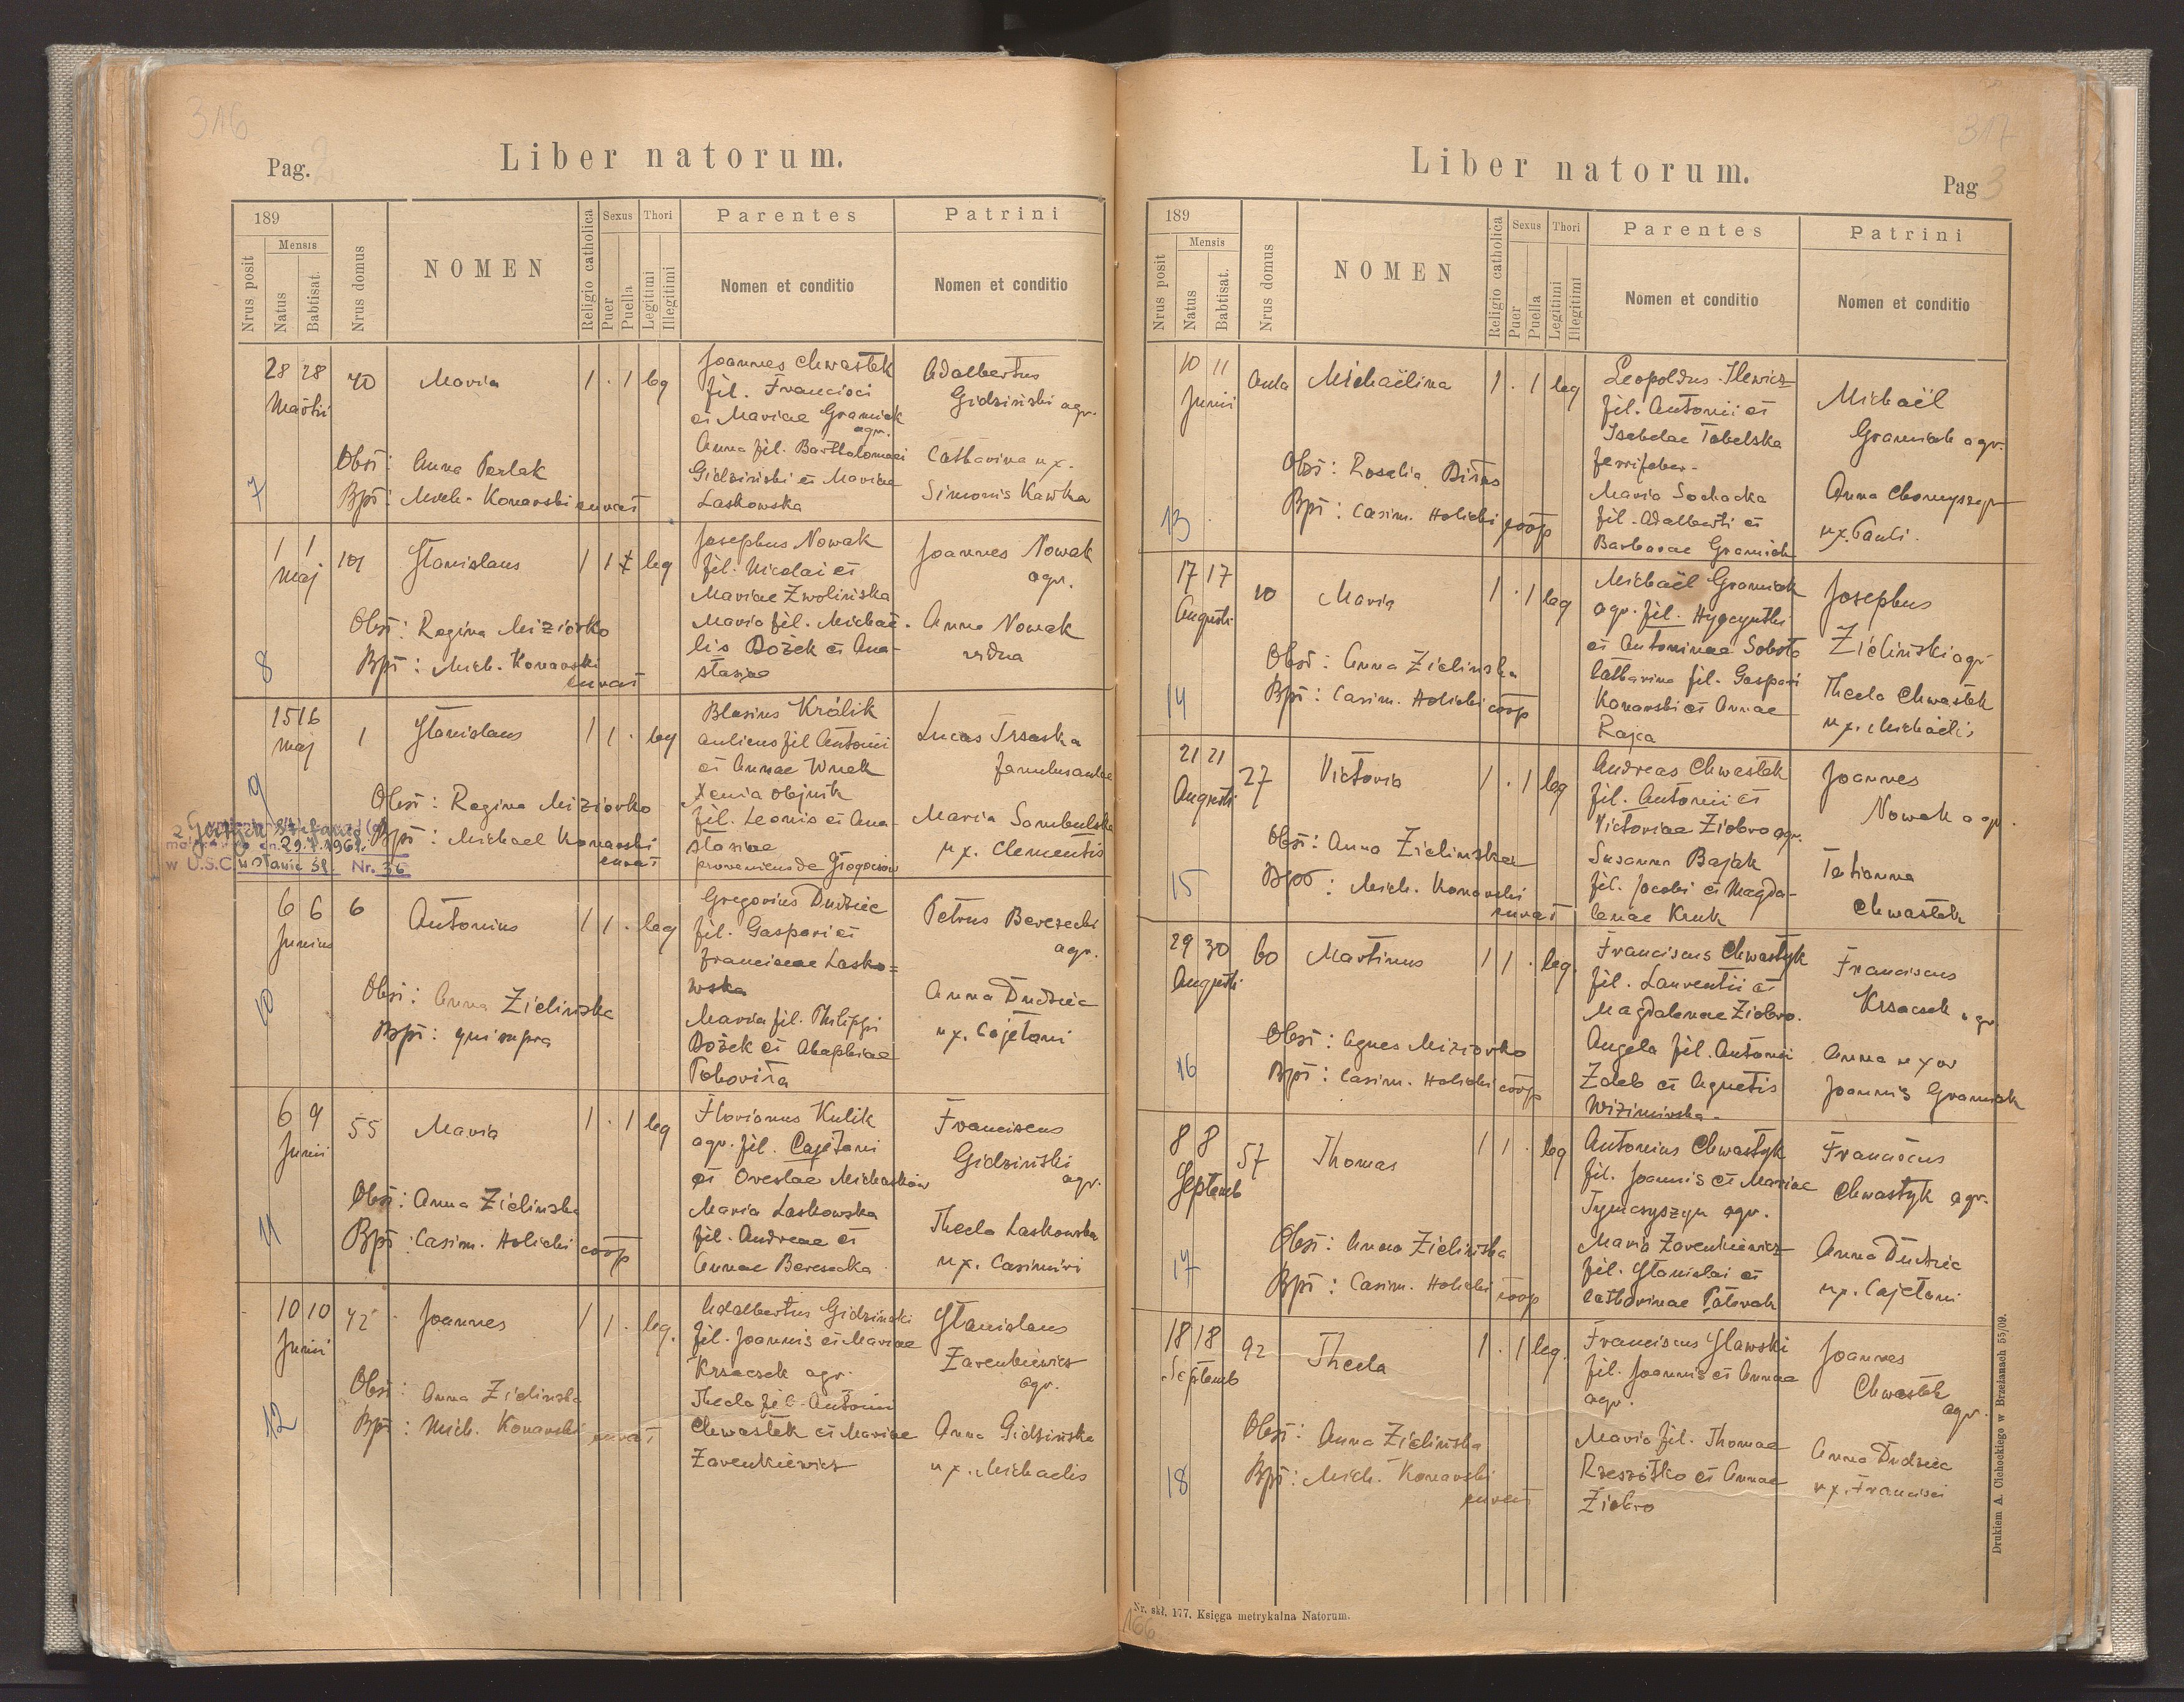 316
Pag. 2
Liber natorum.
189
Mensis
Nrus posit
Natus
Babtisat.
Nrus domus
NOMEN
Religio catholica
Sexus
Puer
Puella
Thori
Legitimi
Illegitimi
Parentes
Nomen et conditio
Patrini
Nomen et conditio
7
28 28
Martii
70
Maria
1 . 1 leg
Obst: Anna Parlak
Bpt: Mich. Konarski curat
Joannes Chwastek
fil. Francisci
et Mariae Graniak
agr.
Anna fil. Bartholomaei
Gidziński et Mariae
Laskowska
Adalbertus
Gidziński agr.
Catharina ux.
Simonis Kawka
8
1 1
Maj
101
Stanislaus
1 1 leg
Obst: Regina Miziorko
Bpt: Mich. Konarski
curat
Josephus Nowak
fil. Nicolai et
Mariae Zwolińska
Maria fil. Michae-
lis Bożek et Ana-
stasiae
Joannes Nowak
agr.
Anna Nowak
vidua
9
15 16
Maj
1
Stanislaus
1 1 . leg
Obst: Regina Miziorko
Bpt: Michael Konarski
curat
29.7.1961.
w U.S.C. Nr. 36
Blasius Królik
aulicus fil Antonii
et Annae Wnek
Xenia Olejnik
fil. Leonis et Ana-
stasiae
proveniens de
Lucas Trzaska
famulus aulae
Maria Sambulska
ux. Clementis
10
6 6
Junius
6
Antonius
1 1 . leg
Obst: Anna Zielinska
Bpt: qui supra
Gregorius Dudziec
fil. Gaspari et
Franciscae Lasko=
wska
Maria fil. Philippi
Bożek et Ahaphiae
Petrus Berezecki
agr.
Anna Dudziec
ux. Cajetani
11
6 9
Junii
55
Maria
1 . 1 leg
Obst: Anna Zielinska
Bpt: Casim. Holicki coop
Florianus Kulik
agr. fil. Cajetani
et Oreslae Michaskiów
Maria Laskowska
fil. Andreae et
Annae Berezecka
Franciscus
Gidziński
agr.
Thecla Laskowska
ux. Casimiri
12
10 10
Junii
42
Joannes
1 1 . leg.
Obst: Anna Zielinska
Bpt: Mich. Konarski curat
Adalbertus Gidziński
fil. Joannis et Mariae
Krzaczek agr.
Thecla fil. Antonii
Chwastek et Mariae
Zarenkiewicz
Stanislaus
Zarenkiewicz
agr.
Anna Gidzińska
ux. Michaelis
317
Liber natorum.
Pag 3
189
Mensis
Nrus posit
Natus
Babtisat.
Nrus domus
NOMEN
Religio catholica
Sexus
Puer
Puella
Thori
Legitimi
Illegitimi
Parentes
Nomen et conditio
Patrini
Nomen et conditio
13
10 11
Junii
Aula
Michaëlina
1 . 1 leg
Obst: Rosalia
Bpt: Casim. Holicki coop
Leopoldus Ilewicz
fil. Antonii et
Isabelae Tabelska
ferrifaber.
Maria Sochacka
fil. Adalberti et
Barbarae Graniak
Michaël
Graniak agr.
Anna Chomyszyn
ux. Pauli.
14
17 17
Augusti
10
Maria
1 . 1 leg
Obst: Anna Zielinska
Bpt: Casim. Holicki coop
Michaël Graniak
agr. fil. Hyacynthi
et Antoninae Sobota
Catharina fil. Gaspari
Konarski et Annae
Rajca
Josephus
Zieliński agr
Thecla Chwastek
ux. Michaëlis
15
21 21
Augusti
27
Victoria
1 . 1 leg
Obst: Anna Zielinska
Bpt: Mich. Konarski
curat
Andreas Chwastek
fil. Antonii et
Victoriae Ziobro agr.
Susanna Bajak
fil. Jacobi et Magda-
lenae Kruk
Joannes
Nowak agr.
Tatianna
Chwastek
16
29 30
Augusti
60
Martinus
1 1 . leg.
Obst: Agnes Miziorko
Bpt: Casim. Holicki coop
Franciscus Chwastyk
fil. Laurentii et
Magdalenae Ziobro.
Angela fil. Antonii
Zdeb et Agnetis
Wizimirska.
Franciscus
Krzaczek agr.
Anna uxor
Joannis Graniak
17
8 8
Septemb
57
Thomas
1 1 . leg
Obst: Anna Zielińska
Bpt: Casim. Holicki coop
Antonius Chwastyk
fil. Joannis et Mariae
Tymczyszyn agr.
Maria Zarenkiewicz
fil. Stanislai et
Catharinae Paterak
Franciscus
Chwastyk agr.
Anna Dudziec
ux. Cajetani
18
18 18
Septemb
92
Thecla
1 . 1 leg.
Obst: Anna Zielińska
Bpt: Mich. Konarski
curat
Franciscus Slawski
fil. Joannis et Annae
agr.
Maria fil. Thomae
Rzeszótko et Annae
Ziobro
Joannes
Chwastek
agr.
Anna Dudziec
ux. Francisci
Drukiem A. Cichockiego w Brzeżanach 55/09.
Nr. skł. 177. Księga metrykalna Natorum.
166